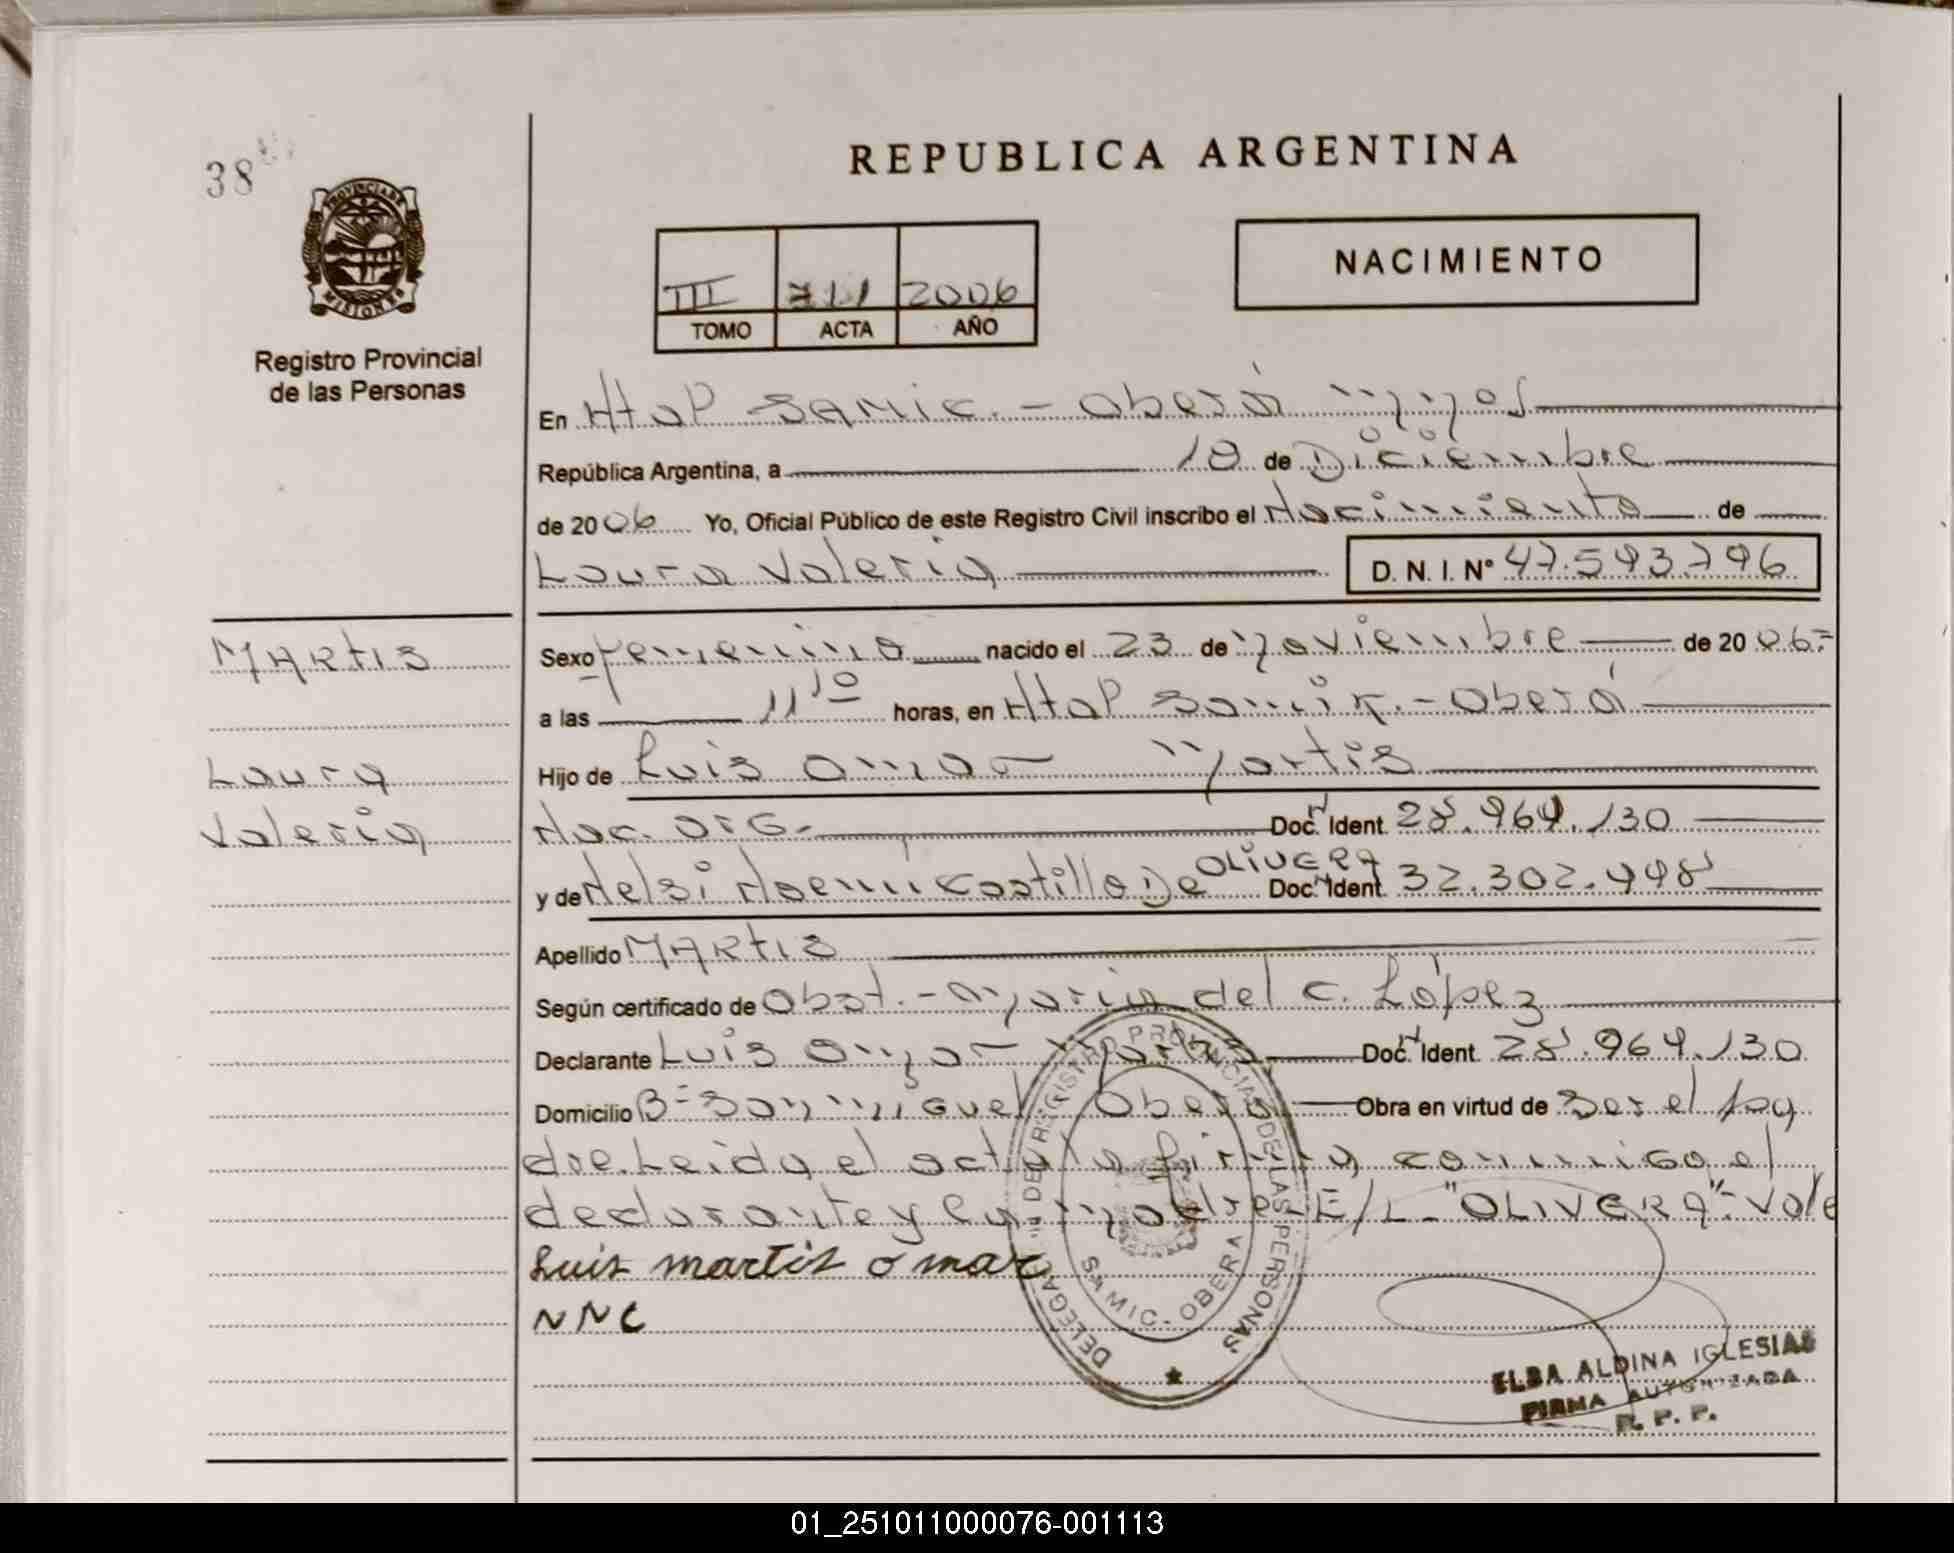 38
PROVINCIA DE
MISIONES
Registro Provincial
de las Personas
REPUBLICA ARGENTINA
III 711 2006
TOMO ACTA AÑO
NACIMIENTO
En Hospl SAMIC. - Oberá Mnes
República Argentina, a 18 de Diciembre
de 2006 Yo, Oficial Público de este Registro Civil inscribo el Nacimiento de
Laura Valeria D. N. I. N° 47.593.796
MARTIS
Laura
Valeria
Sexo femenino nacido el 23 de Noviembre de 2006=
a las 11 10 horas, en Hosp Samic. - Oberá
Hijo de Luis Omar Martis
Nac. Arg. Doc. N Ident. 28.964.130
y de Nelsi Noemi Castillo De OLIVERA Doc. N Ident. 32.302.998
Apellido MARTIS
Según certificado de Obst. - María del C. López
Declarante Luis Omar Martis Doc. N Ident. 28.964.130
Domicilio B= San Miguel Oberá Obra en virtud de Ser el pa
dre. Leida el acta la firma conmigo el
declarante y la madre. E/L - "OLIVERA" - Vale
Luis martis omar
NNC
DELEGACION DEL REGISTRO PROVINCIAL DE LAS PERSONAS
SAMIC. - OBERA
ELBA ALDINA IGLESIAS
FIRMA AUTORIZADA
R. P. P.
01_251011000076-001113